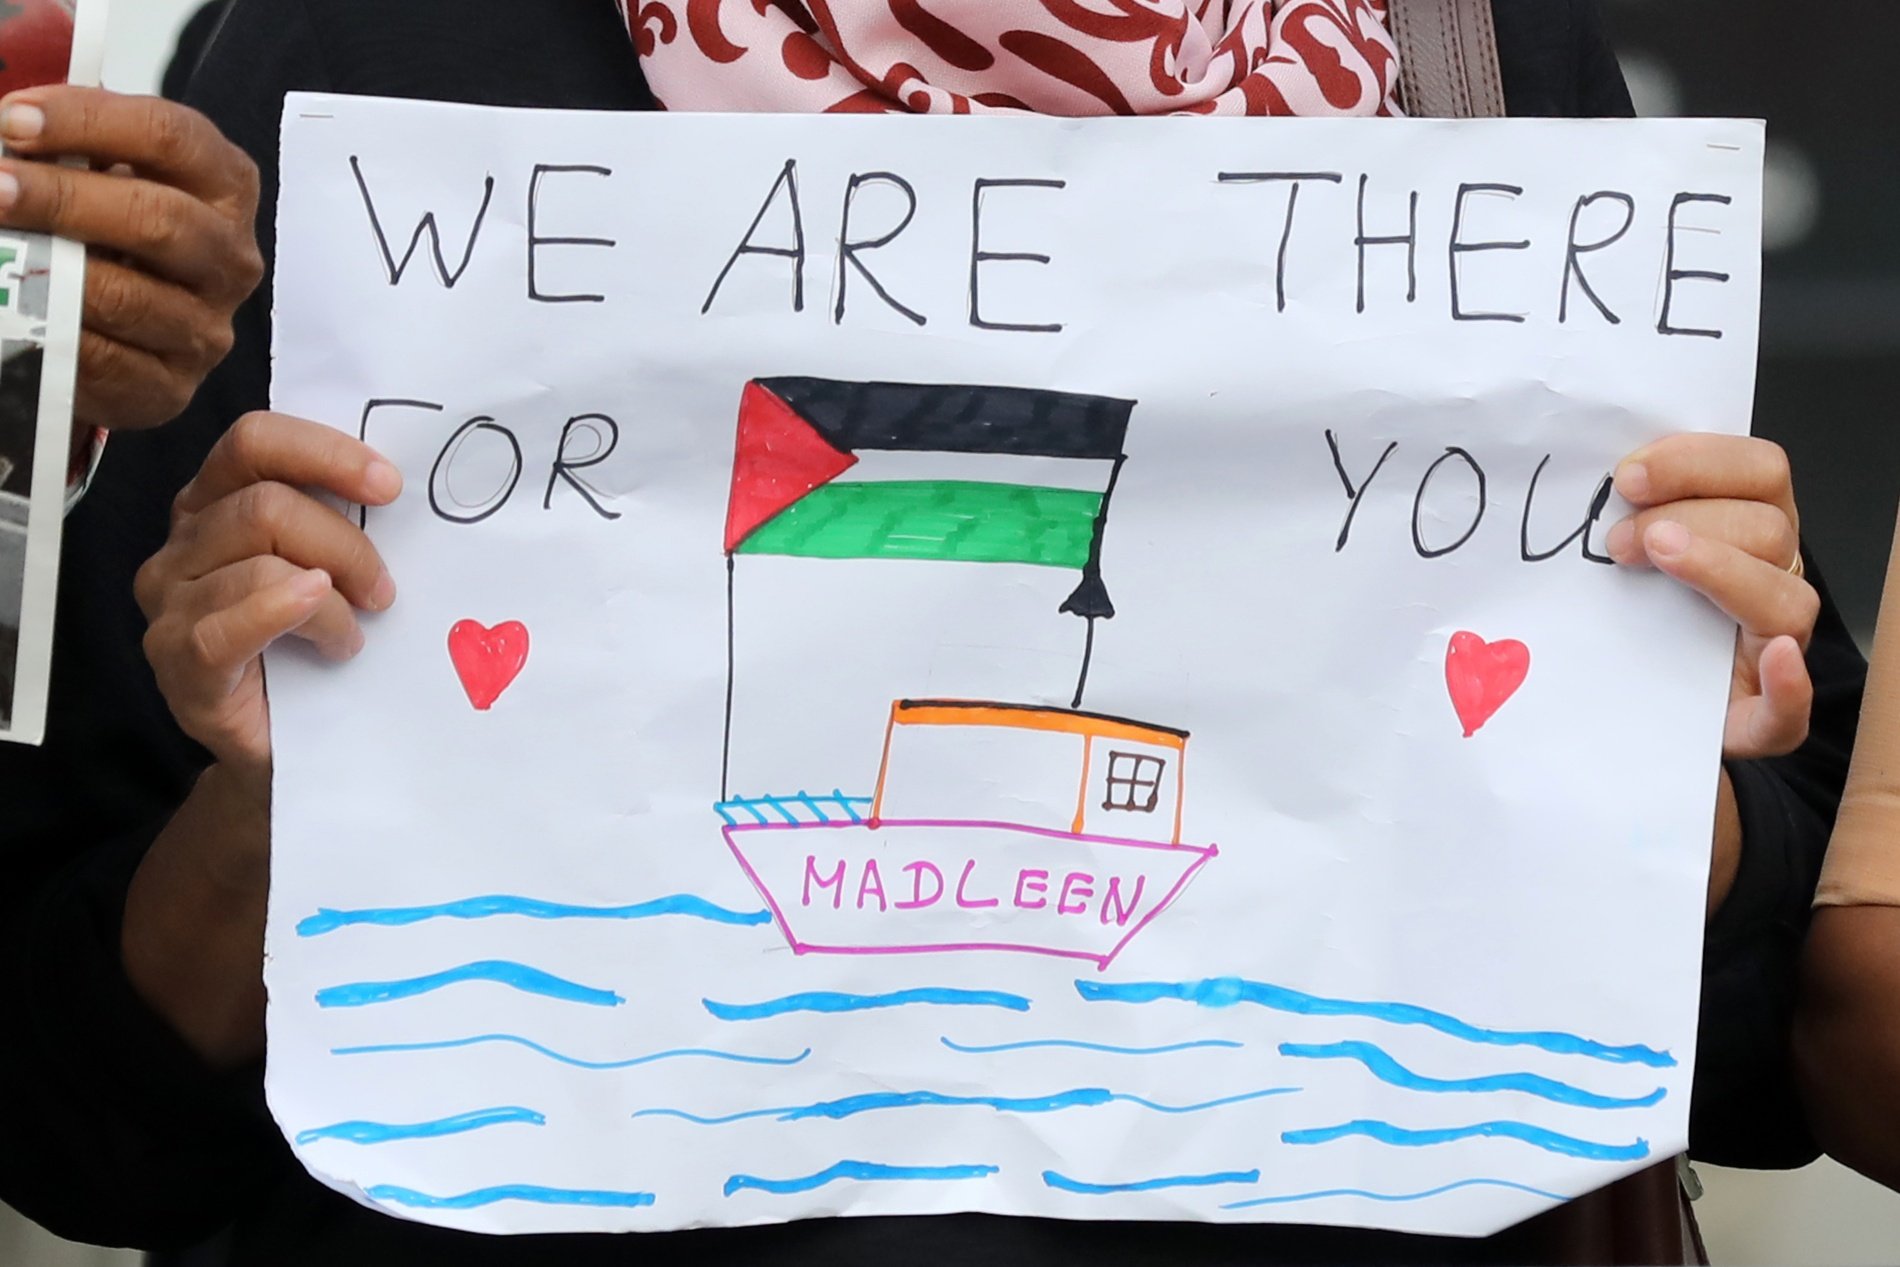 WE ARE THERE
FOR YOU
MADLEEN